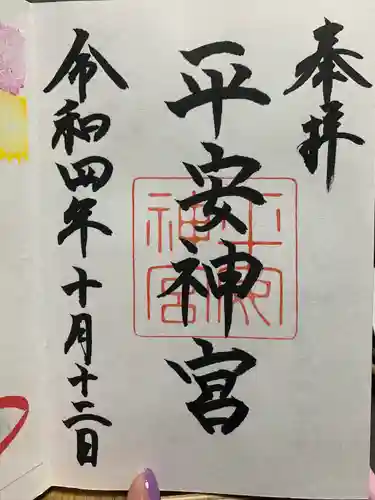 奉拝
平安神宮
令和四年十月十二日
平安神宮